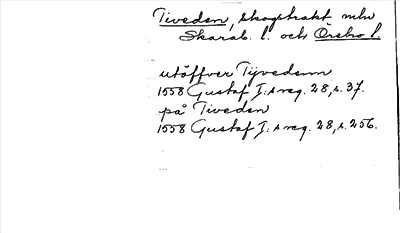 Tiveden, skogstrakt mellan
Skarab. l. och Örebro l.
utöffver Tijvedenn
1558 Gustaf I:s reg. 28, s. 37.
på Tiveden
1558 Gustaf I:s reg. 28, s. 256.